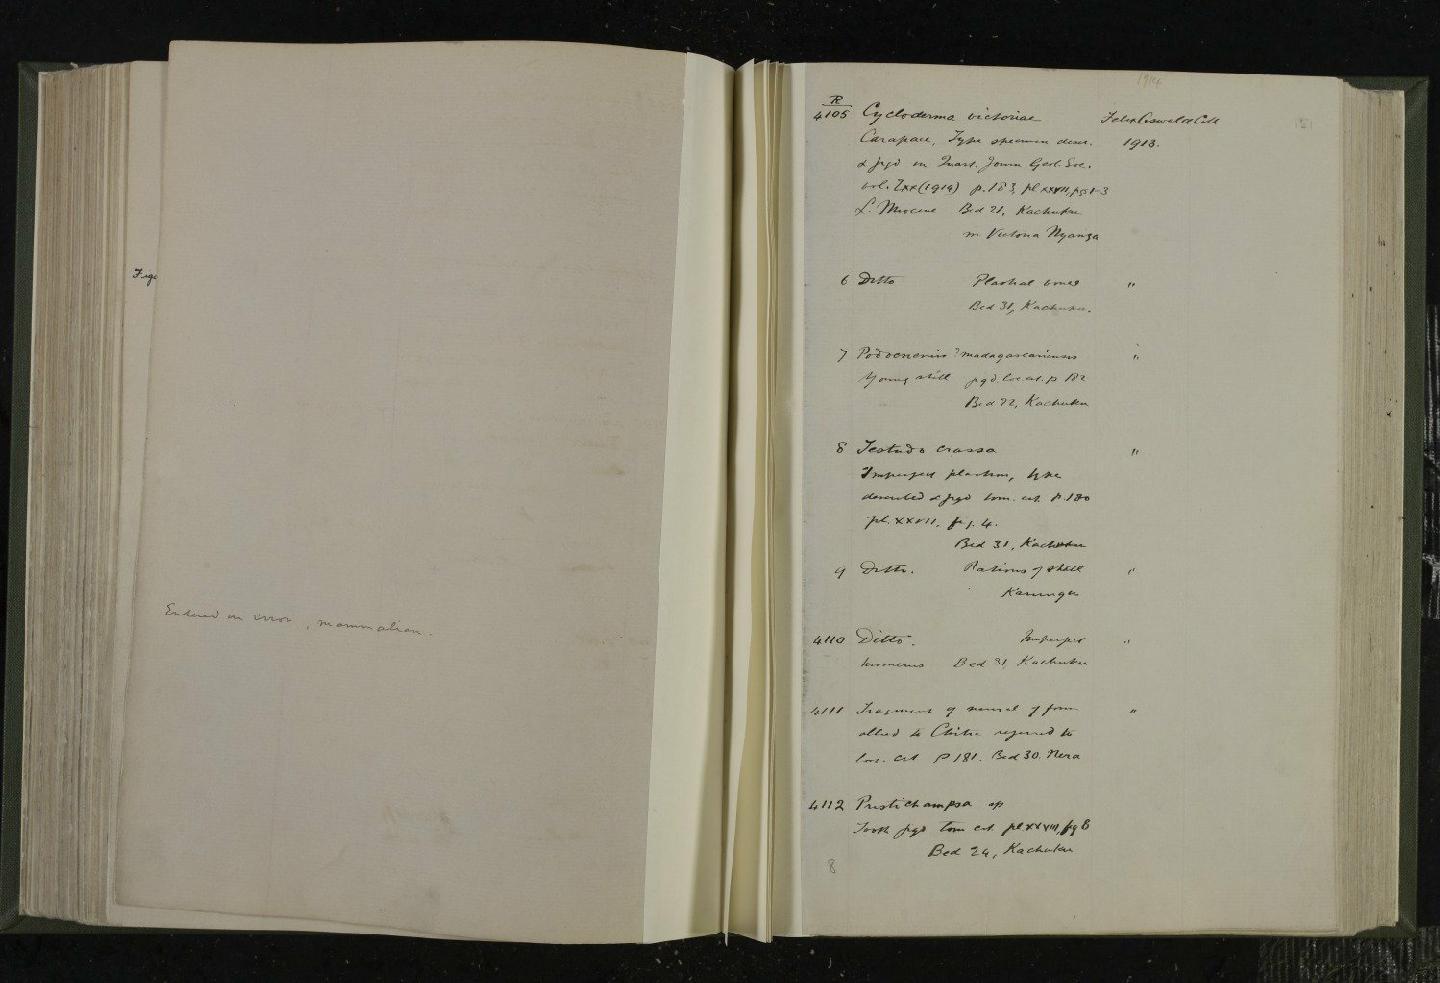 Entered in error, mammalian.
1914
R
4105 Cycloderma victoriae Felix Oswald Coll
Carapace, Type specimen descr. 1913.
& figd in Quart. Journ Geol. Soc.
vol. lxx (1914) p. 183, pl xxvii, figs 1-3
L. Miocene Bed 21, Kachuku
nr Victoria Nyanza
6 Ditto Plastral bones "
Bed 31, Kachuku.
7 Podocnemis ? madagascariensis "
Young skull figd. loc cit. p 182
Bed 22, Kachuku
8 Testudo crassa "
Imperfect plastron, type
described & figd tom. cit. p. 180
pl. xxvii, fig. 4.
Bed 31, Kachuku
9 Ditto. Portions of shell "
Karungu
4110 Ditto. Imperfect "
humerus Bed 31, Kachuku
4111 Fragment of neural of form "
allied to referred to
tom. cit p 181. Bed 30. Nira
4112 Pristichampsa sp
Tooth figd tom cit. pl xxviii, fig 8
Bed 24, Kachuku
8